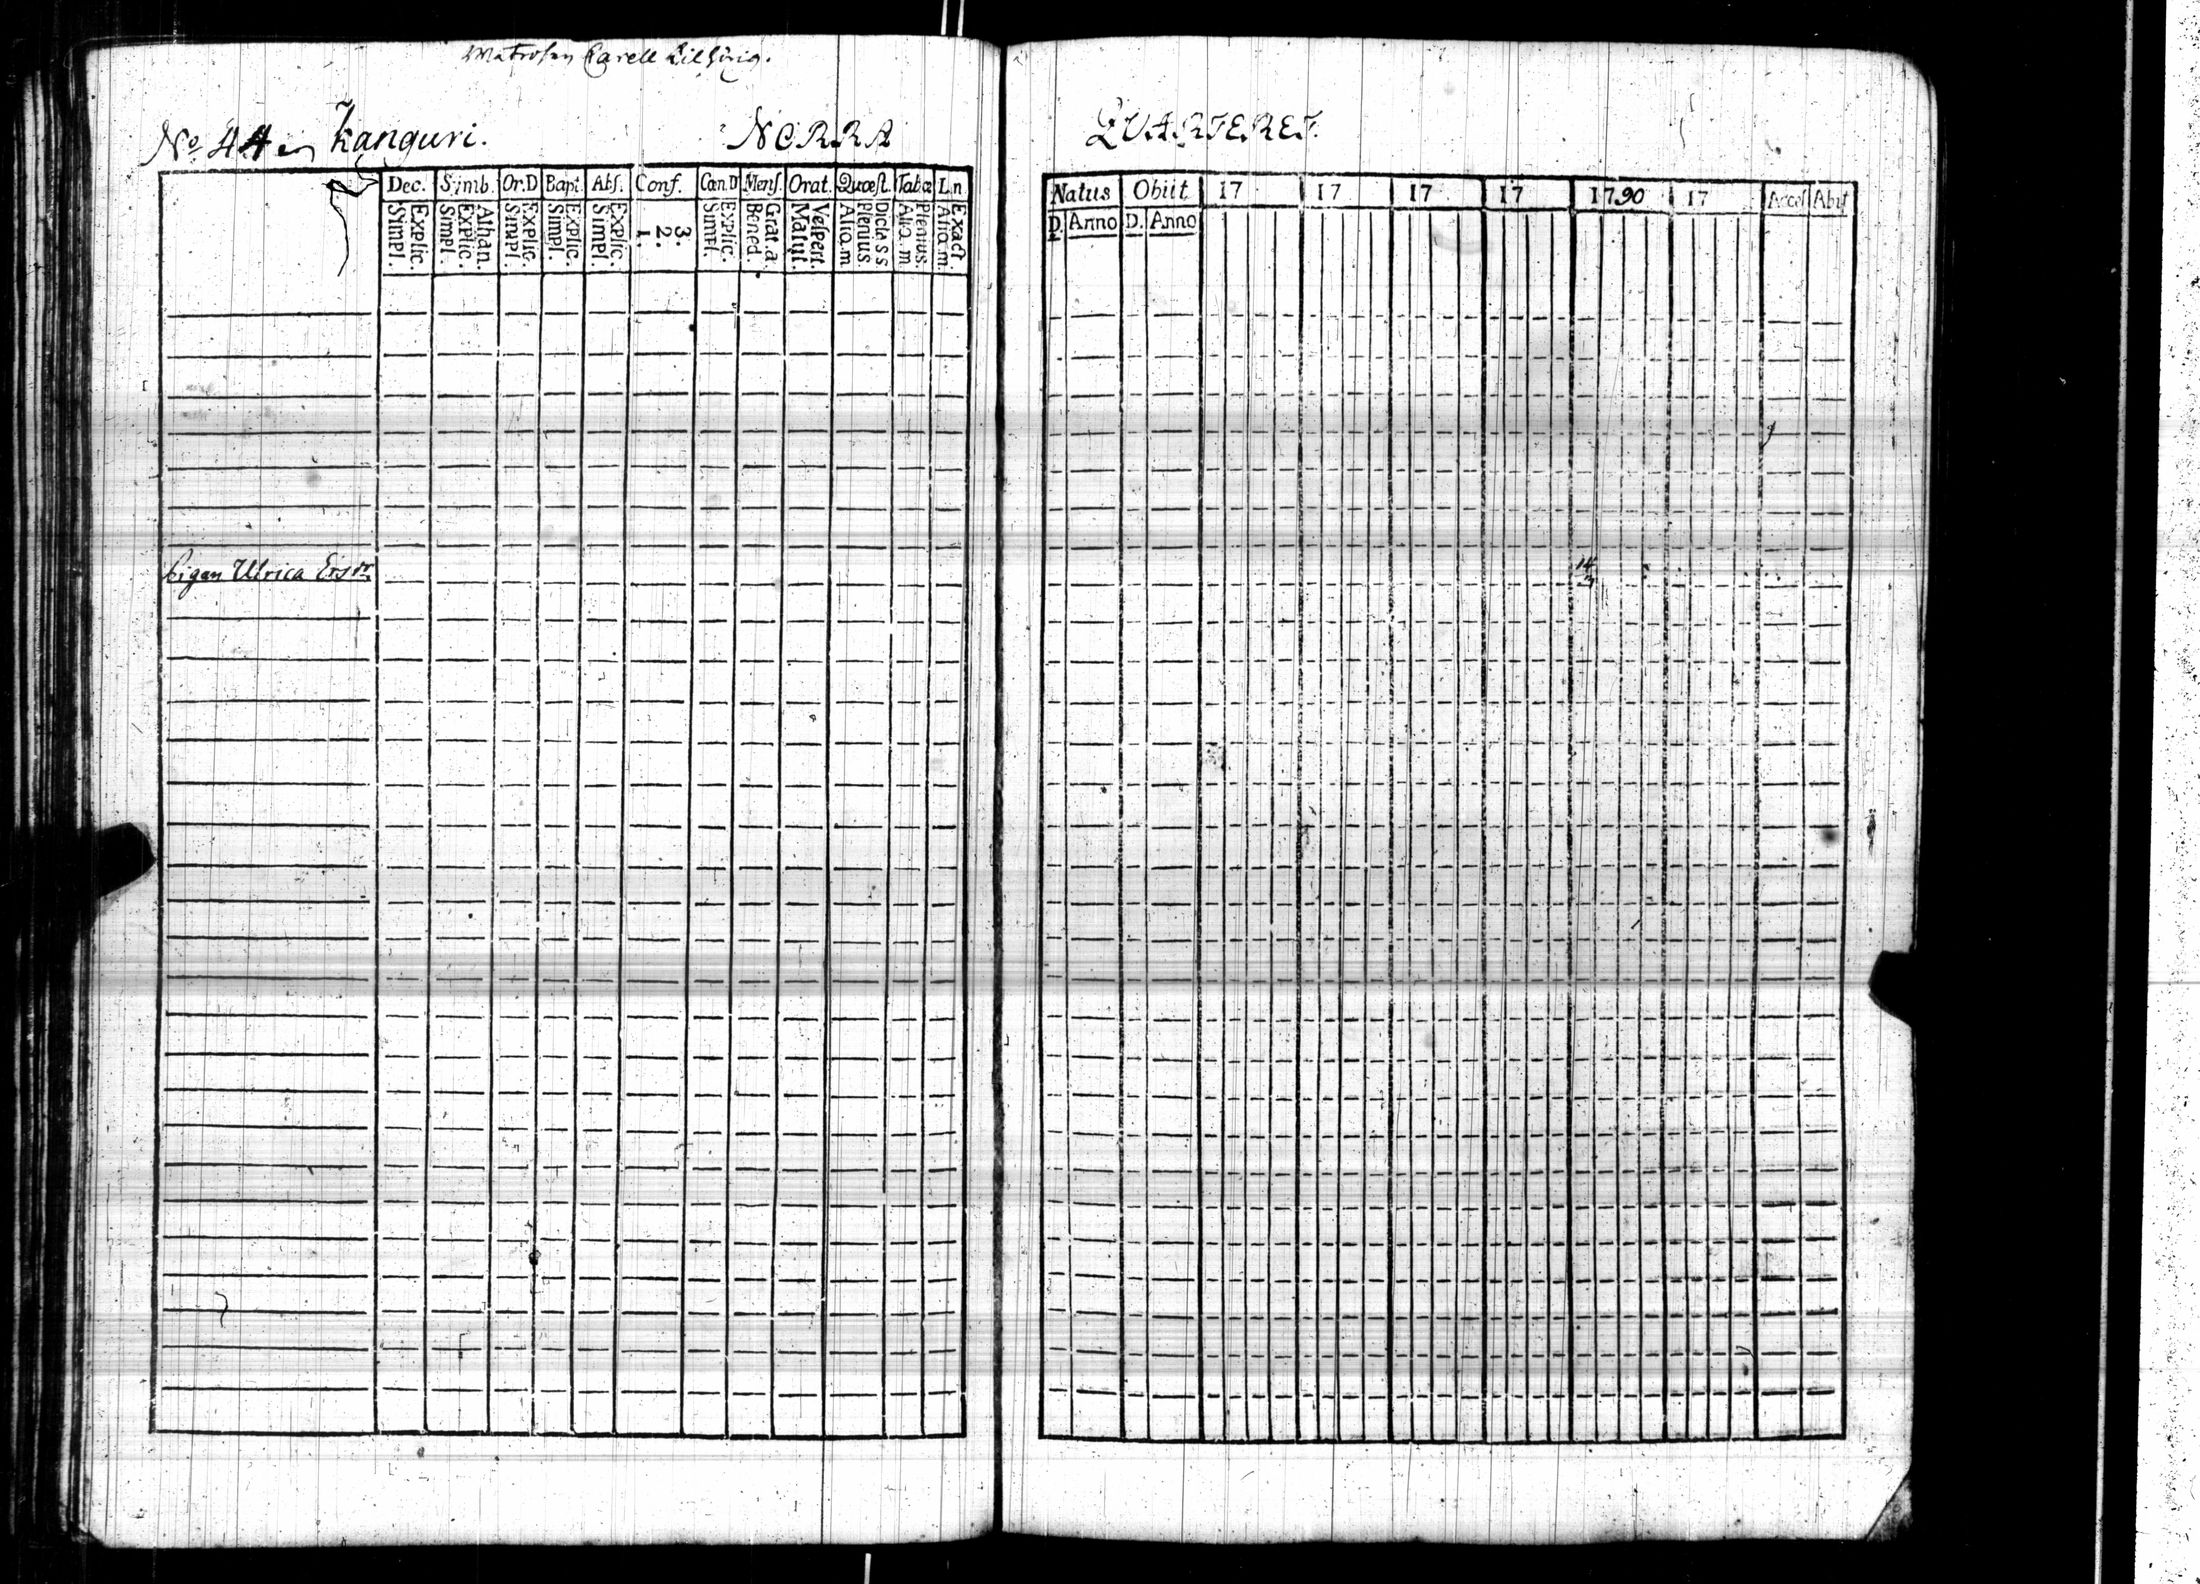 Matrosen Carell
No 44 Kanguri. NORRA
QUARTERET.
Dec. Simb. Or.D Bapt. Abs. Conf. Cœn.D Mens. Orat. Quæst. Tabæ L.n
Simpl. Explic. Simpl. Explic. Athan. Simpl. Explic. Simpl. Explic. Simpl. Explic. 1. 2. 3. Simpl. Explic. Bened. Grat.a. Matut. Vespert. Aliq.m Plenius. Dicta s.s. Aliq.m Plenius. Aliq.m. Exact.
Natus Obiit 17 17 17 17 1790 17 Acces Abit
D. Anno D. Anno
Pigan Ulrica Ersdr 14